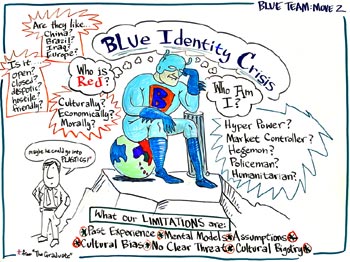 BLUE TEAM: MOVE 2
BLUE IDENTITY CRISIS
Are they like
China?
Brazil?
Iraq?
Europe?
Is it
open?
closed?
despotic?
hostile?
friendly?
Who is
Red?
Culturally?
Economically?
Morally?
Who Am
I?
B
Hyper Power?
Market Controller?
Hegemon?
Policeman?
Humanitarian?
maybe he could go into
PLASTICS!*
What our LIMITATIONS are:
Past Experience Mental Models Assumptions
Cultural Bias No Clear Threat Cultural Bigotry
* from "The Graduate"